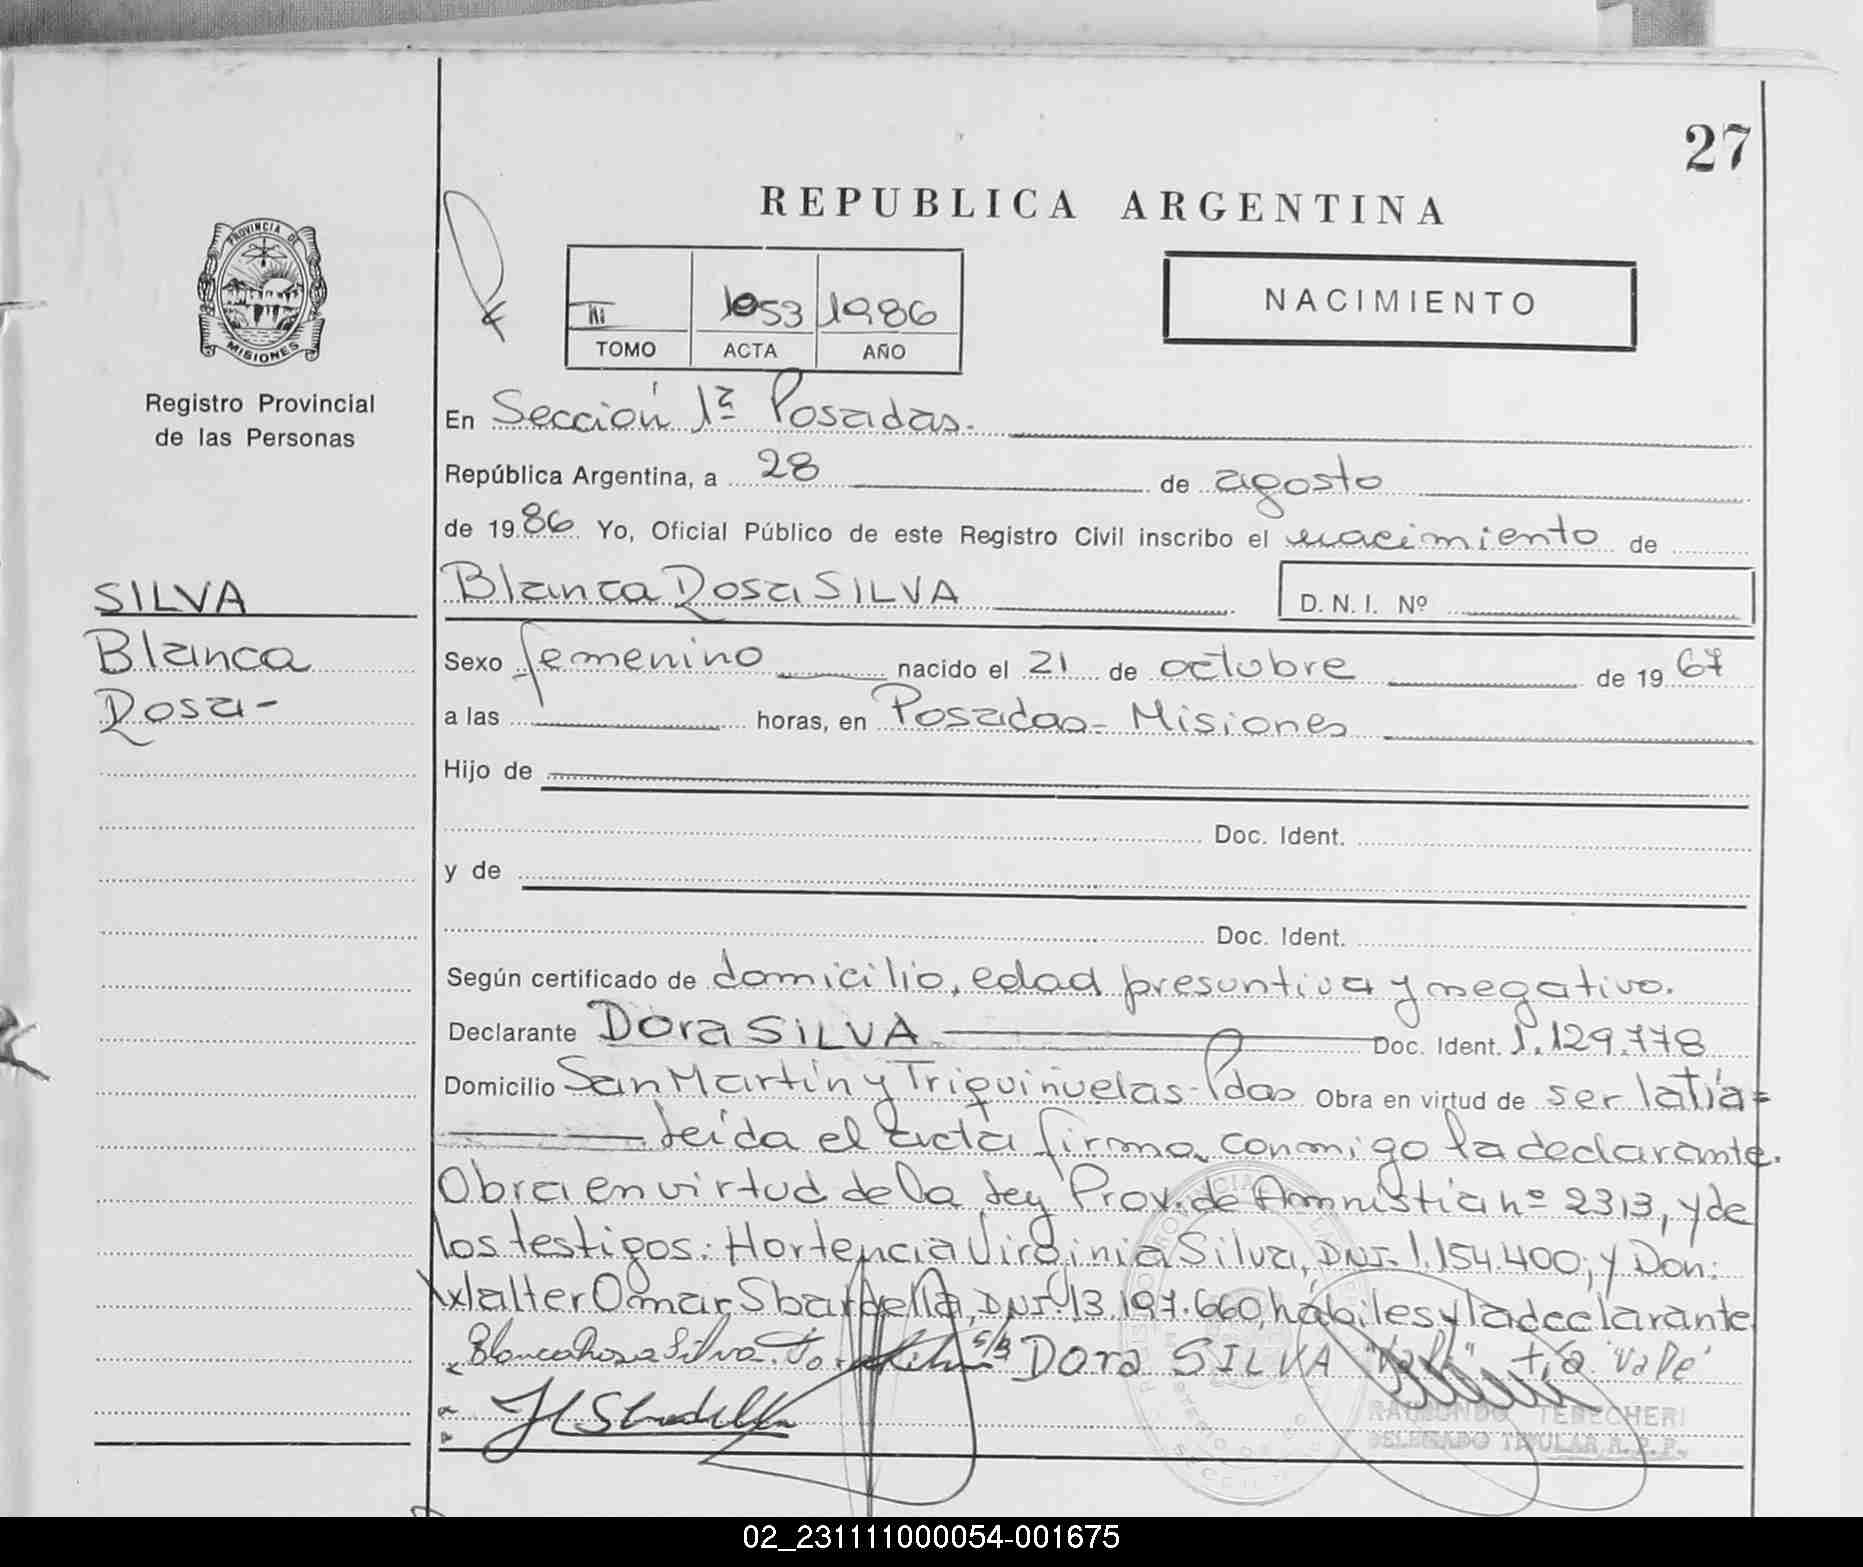 27
REPUBLICA ARGENTINA
PROVINCIA DE
MISIONES
Registro Provincial
de las Personas
III 1053 1986
TOMO ACTA AÑO
NACIMIENTO
En Sección 1ª Posadas.
República Argentina, a 28 de agosto
de 1986 Yo, Oficial Público de este Registro Civil inscribo el nacimiento de
SILVA
Blanca
Rosa-
Blanca Rosa SILVA D.N.I. Nº
Sexo femenino nacido el 21 de octubre de 1967
a las horas, en Posadas- Misiones
Hijo de
Doc. Ident.
y de
Doc. Ident.
Según certificado de domicilio, edad presuntiva y negativo.
Declarante Dora SILVA Doc. Ident. 1.129.778
Domicilio San Martín y Triquiñuelas- Pdas Obra en virtud de ser la tía=
Leída el acta firma conmigo la declarante.
Obra en virtud de la Ley Prov. de Amnistía nº 2313, y de
los testigos: Hortencia Virginia Silva, DNI. 1.154.400; y Don:
Walter Omar Sbardella, DNI. 13.197.660, hábiles y la declarante
Blanca Rosa Silva. s/B Dora SILVA "Vale" tía "Vale"
RAIMUNDO TENECHERI
DELEGADO TITULAR R.P.P.
02_231111000054-001675